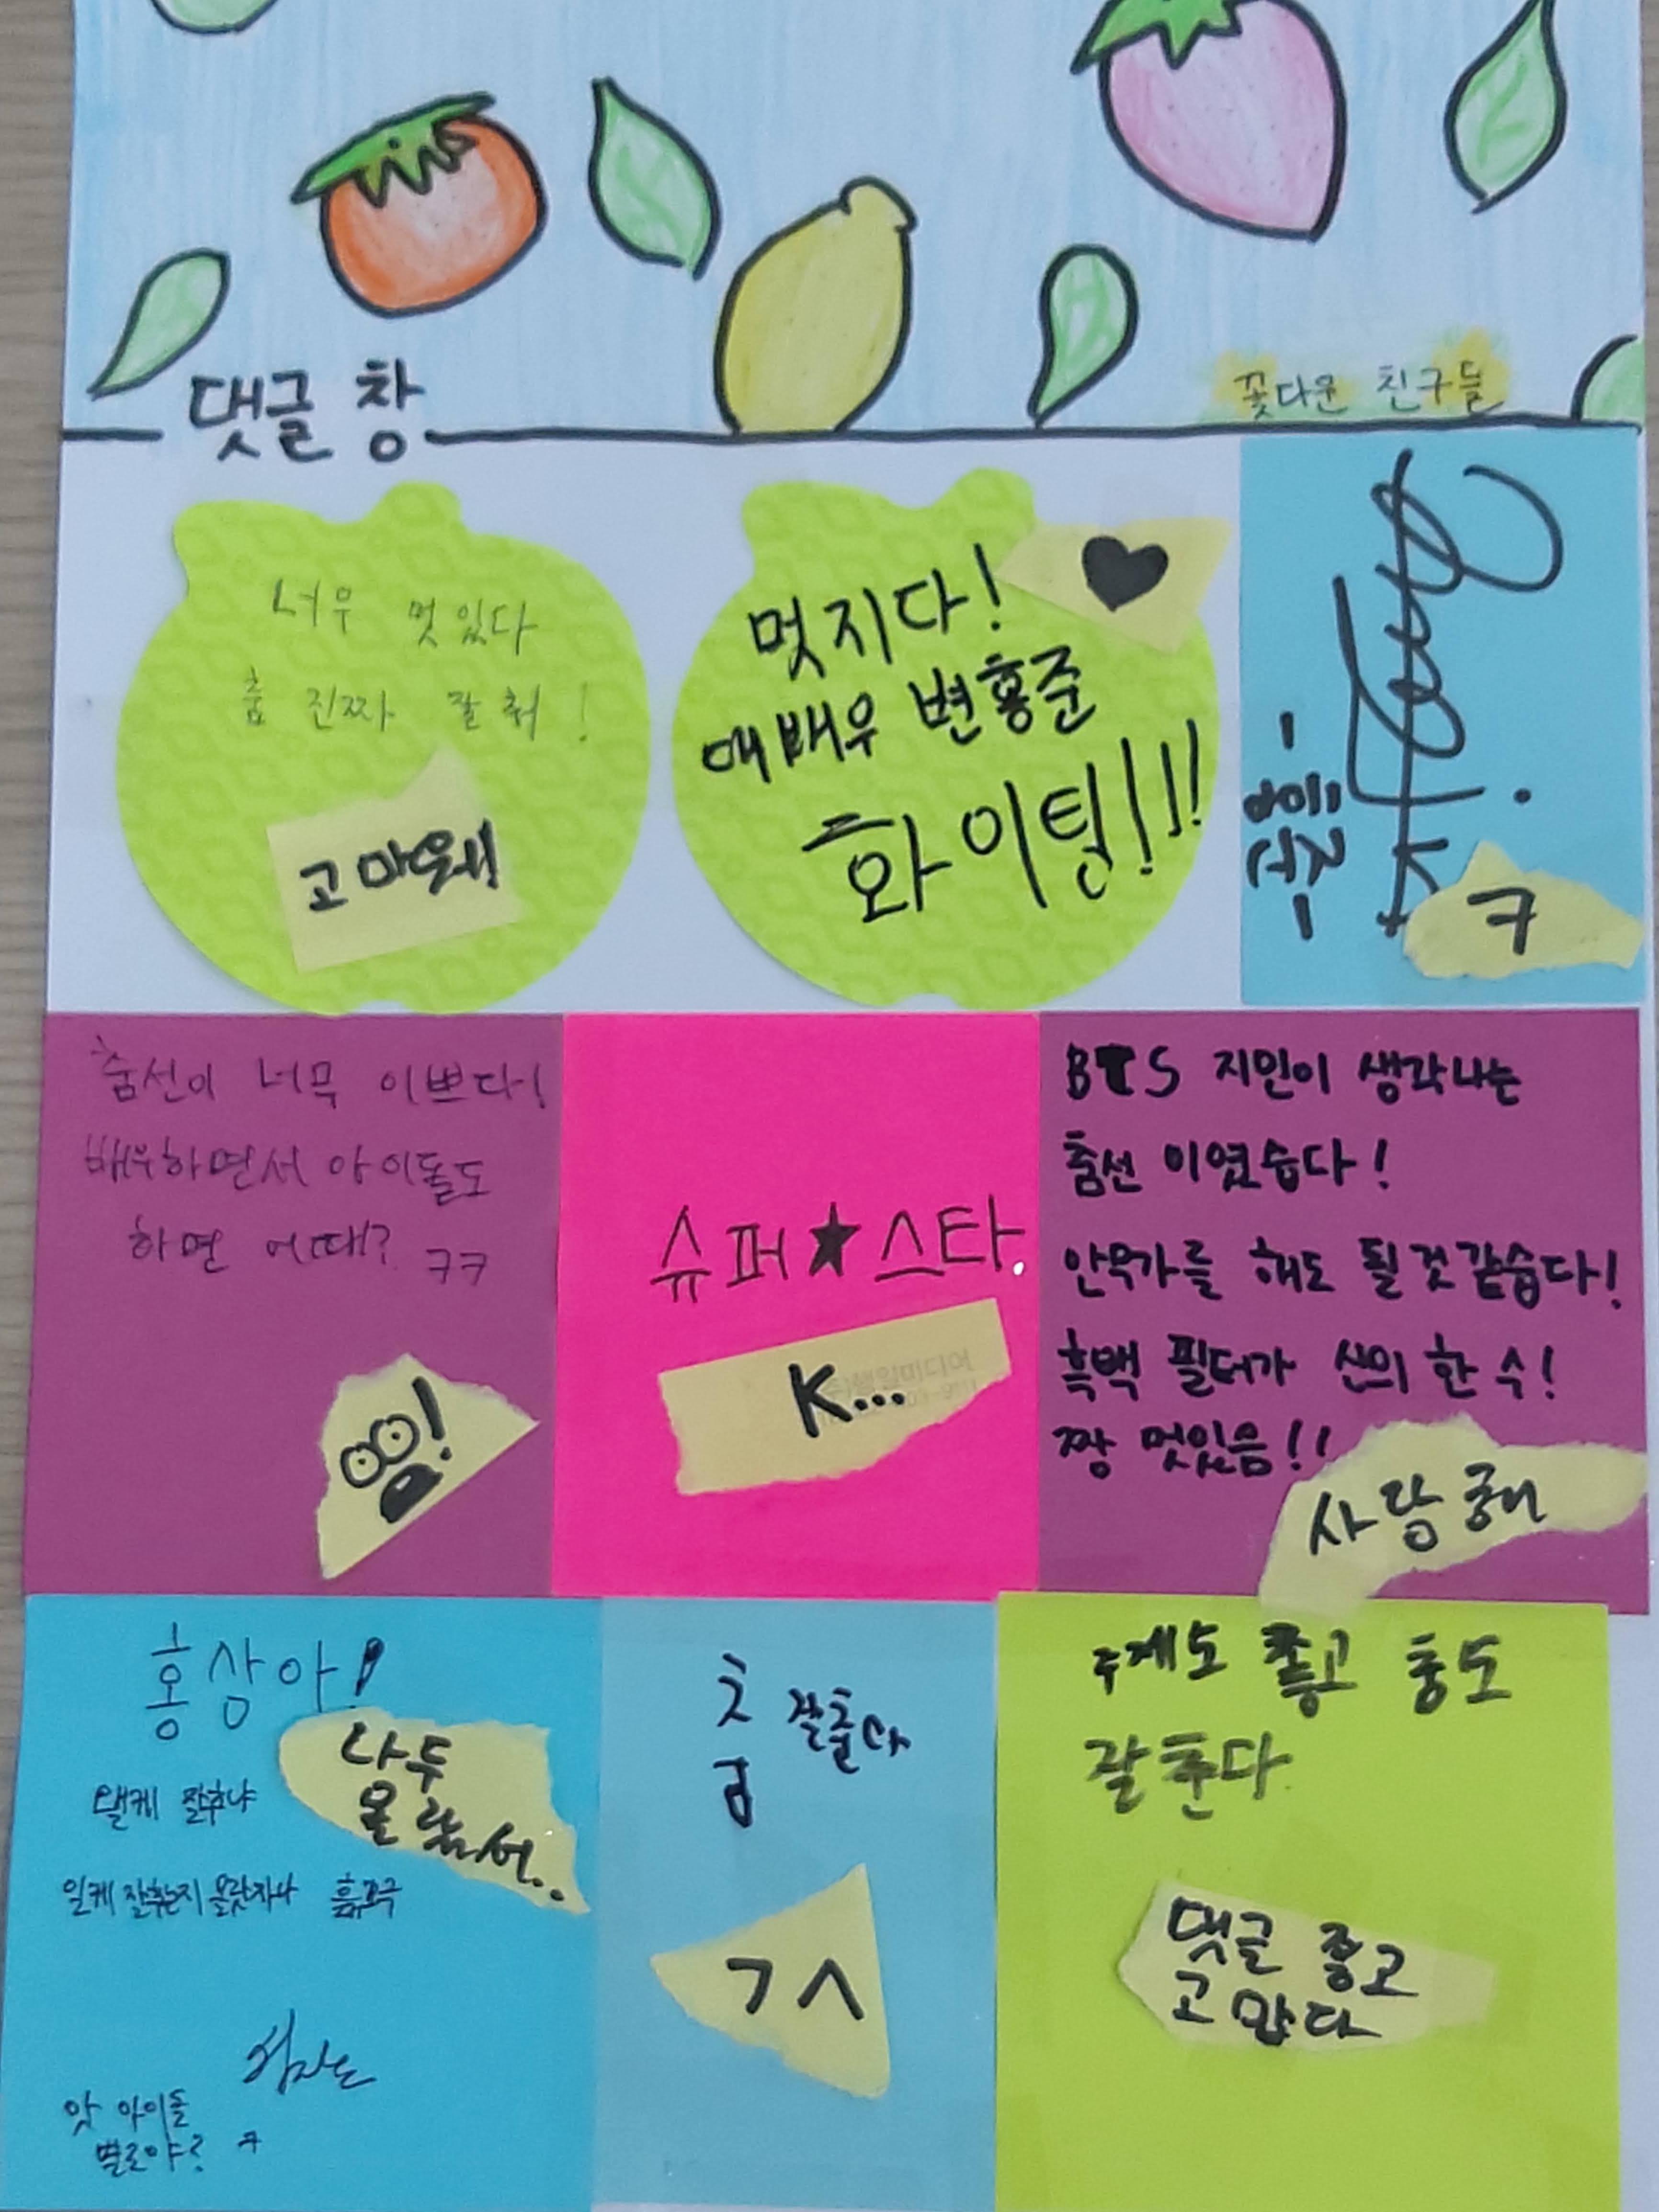 댓글 창
꽃다운 친구들
너무 멋있다
춤 진짜 잘 춰!
고마워!
멋지다!
애배우 변홍준
화이팅!!!
ㅋ
춤선이 너무 이쁘다!
배우하면서 아이돌도
하면 어때? ㅋㅋ
슈퍼★스타
K...
BTS 지민이 생각나는
춤선 이였습다!
안무가를 해도 될것 같습다!
흑백 필터가 신의 한 수!
짱 멋있음!!
사랑해
홍삼아!
나두
몰랐어..
웰케 잘추냐
일케 잘추는지 몰랐자나
앗 아이돌
별로야? ㅋ
춤 잘춘다
ㄱㅅ
주제도 좋고 춤도
잘 춘다
댓글 좋고
고맙다